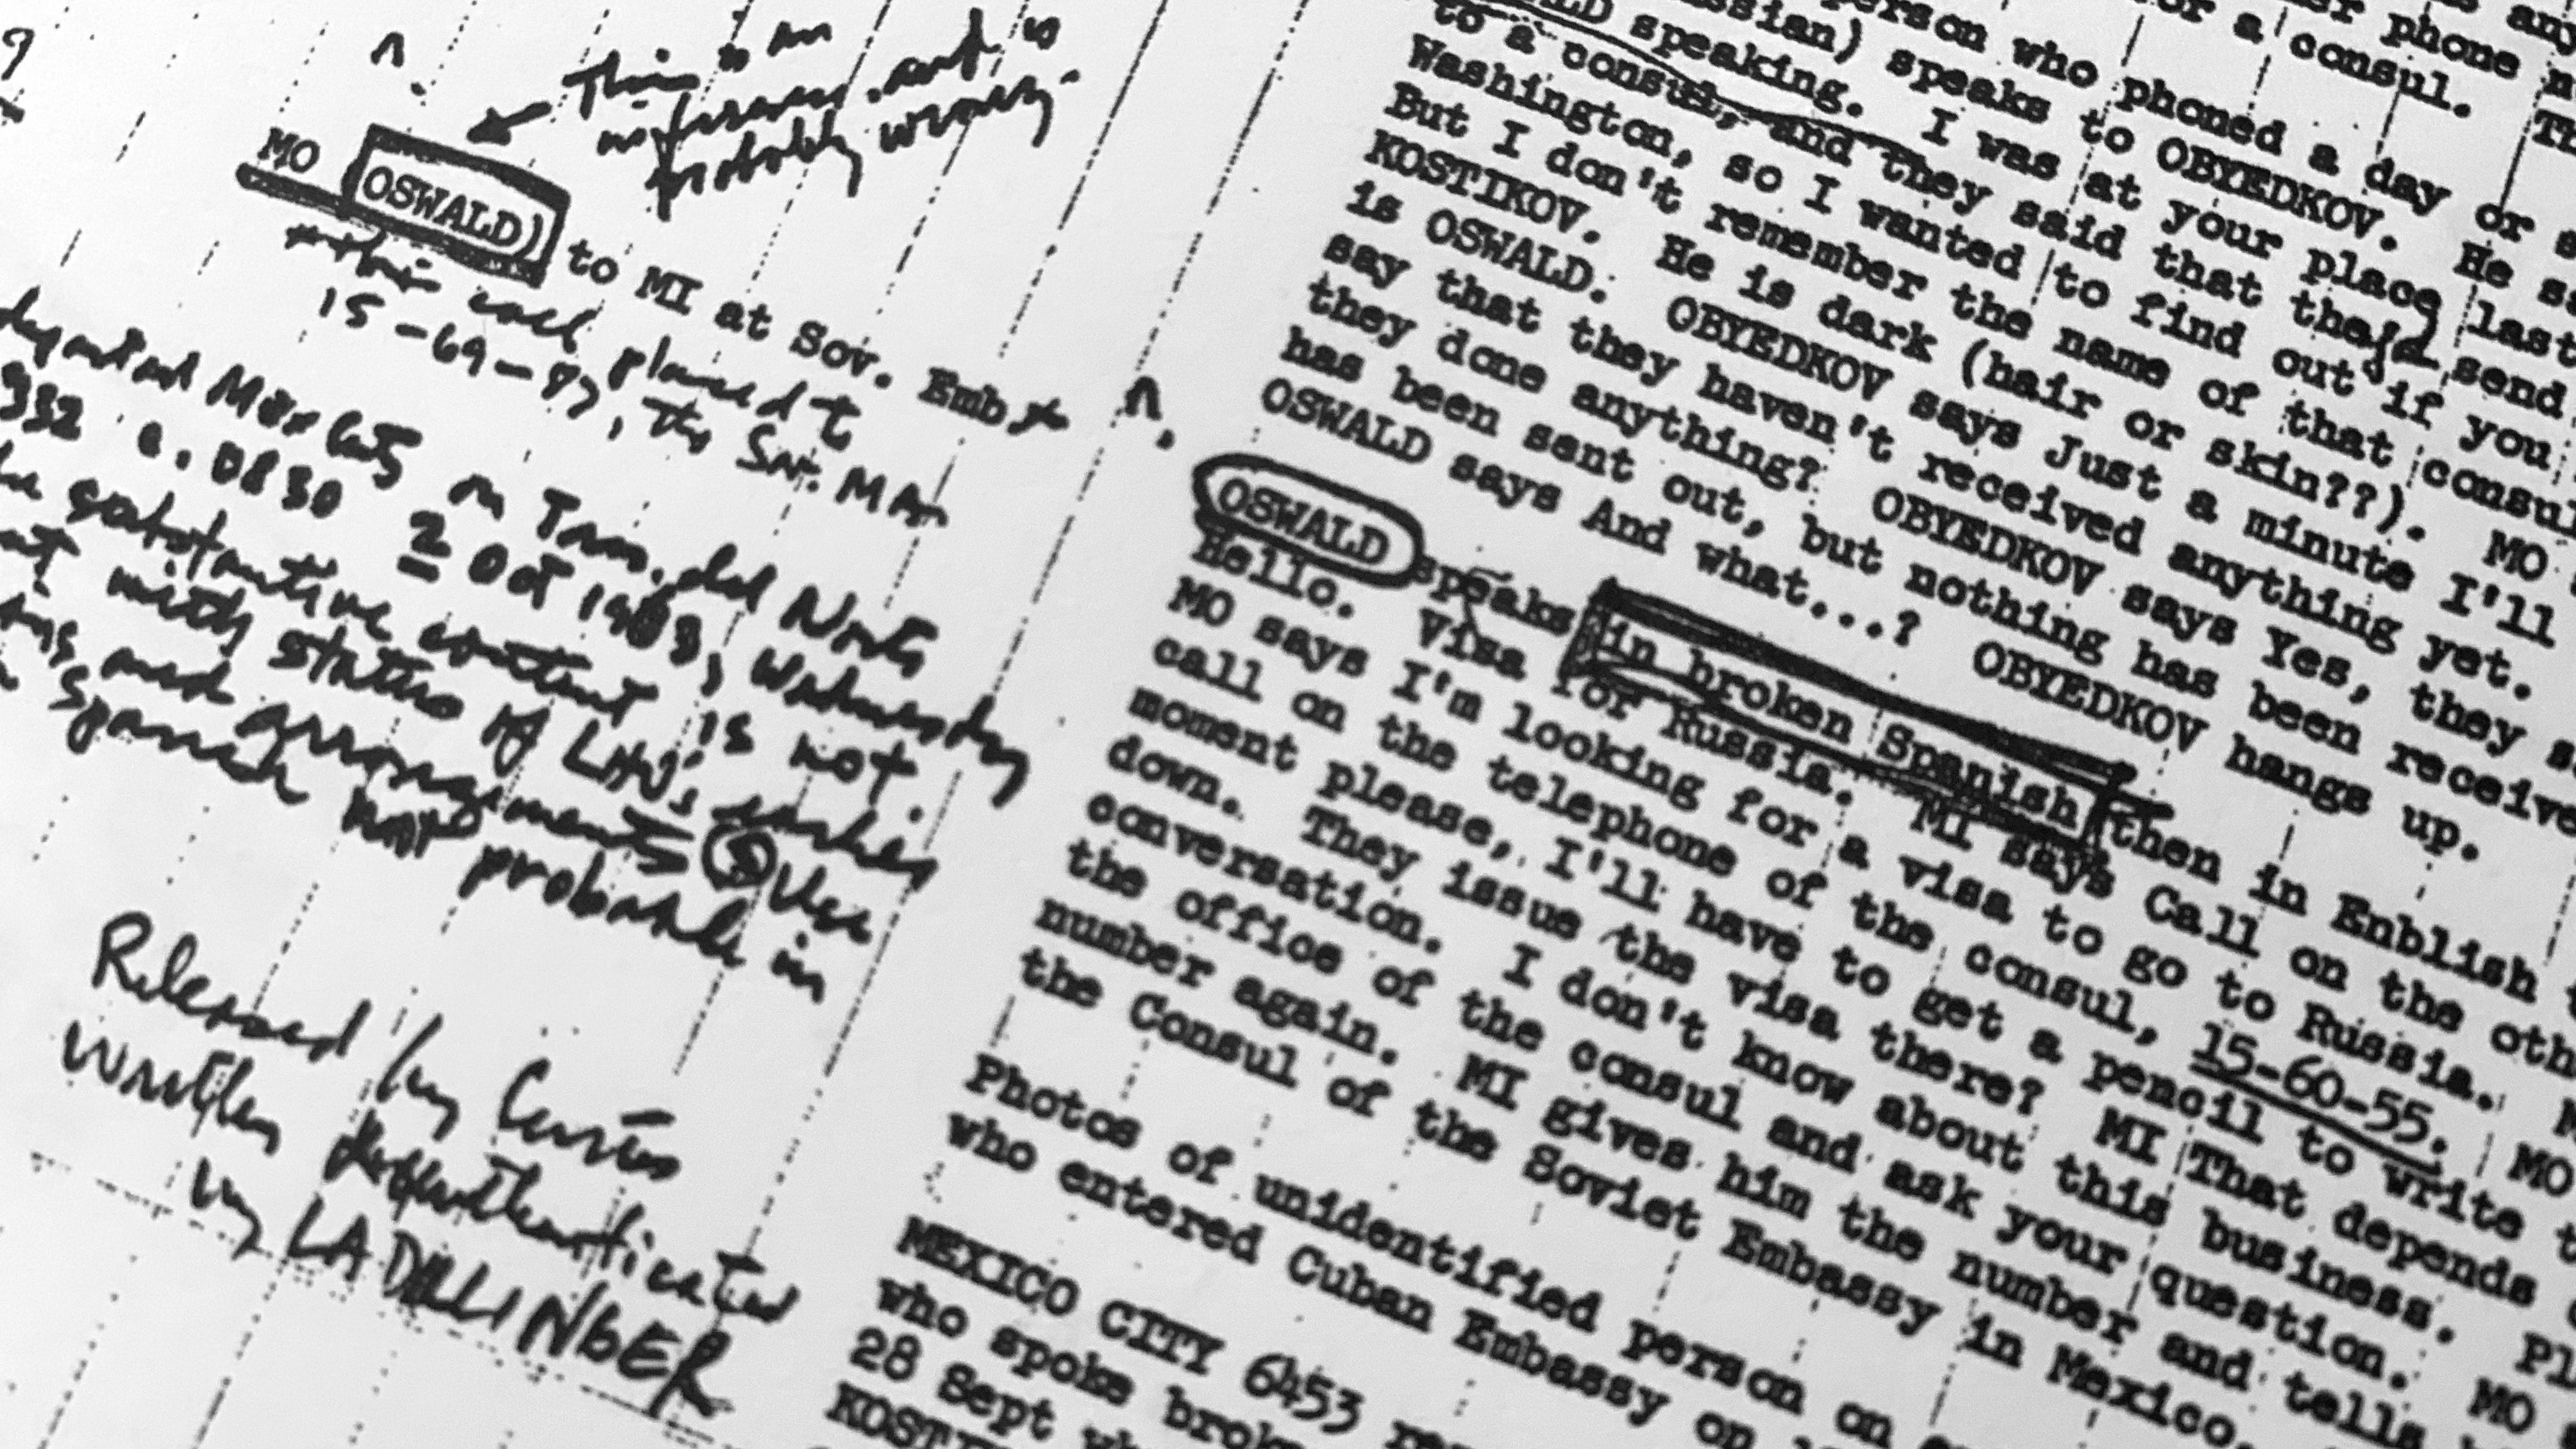 This is an
inference and is
probably wrong.
MO (OSWALD) to MI at Sov. Emb
this call placed to
15-69-87, the Sov. MA
departed Mex City on Trans. del Norte
332 a. 0830 2 Oct 1963, Wednesday
substantive content is not.
with status of LHO's
and arrangements (3) Use
Spanish not probable in
Released by Curtis
written deauthenticated
by LADILLINGER
any
phone
for a consul.
person who phoned a day or
speaks to OBYEDKOV. He
speaking. I was at your place last
to a consul, and they said that they'd send
Washington, so I wanted to find out if you
But I don't remember the name of that consul
KOSTIKOV. He is dark (hair or skin??). MO
is OSWALD. OBYEDKOV says Just a minute I'll
say that they haven't received anything yet.
they done anything? OBYEDKOV says Yes, they
has been sent out, but nothing has been receive
OSWALD says And what...? OBYEDKOV hangs up.
OSWALD speaks in broken Spanish then in Enblish
Hello. Visa for Russia. MI says Call on the oth
MO says I'm looking for a visa to go to Russia.
call on the telephone of the consul, 15-60-55. MO
moment please, I'll have to get a pencil to write
down. They issue the visa there? MI That depends
conversation. I don't know about this business. Pl
the office of the consul and ask your question. MO
number again. MI gives him the number and tells
the Consul of the Soviet Embassy in Mexico.
Photos of unidentified person on
who entered Cuban Embassy on
MEXICO CITY 6453
who spoke broke
28 Sept
KOSTI